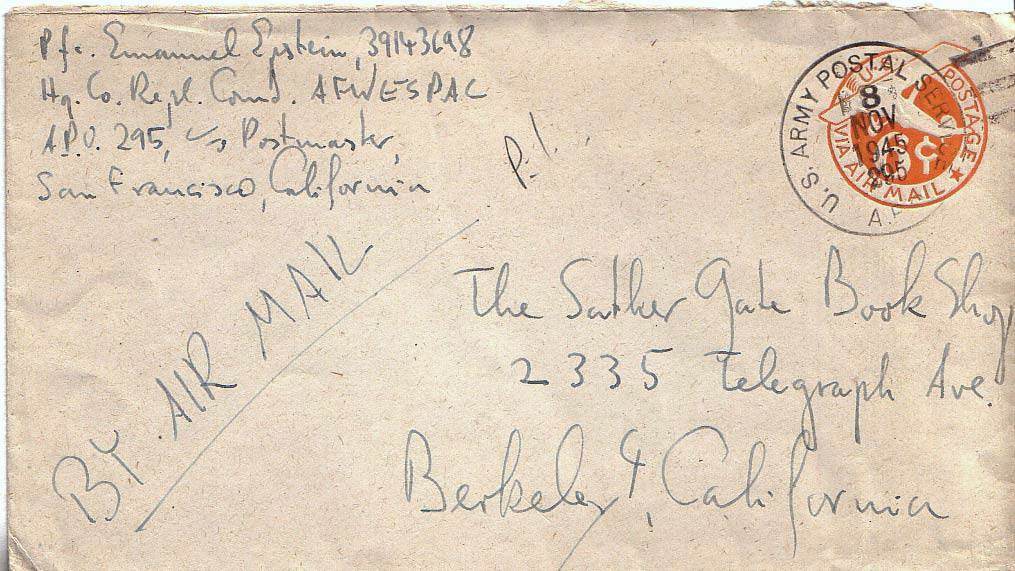 Pfc. Emanuel Epstein, 39143698
Hq. Co. Repl. Comd. AFWESPAC
A.P.O. 295, c/o Postmaster,
San Francisco, California
P.I.
U.S. ARMY POSTAL SERVICE
A.P.
8
NOV
1945
295
U.S. POSTAGE
VIA AIR MAIL
6 C
BY AIR MAIL
The Sather Gate Book Shop
2335 Telegraph Ave.
Berkeley 4, California